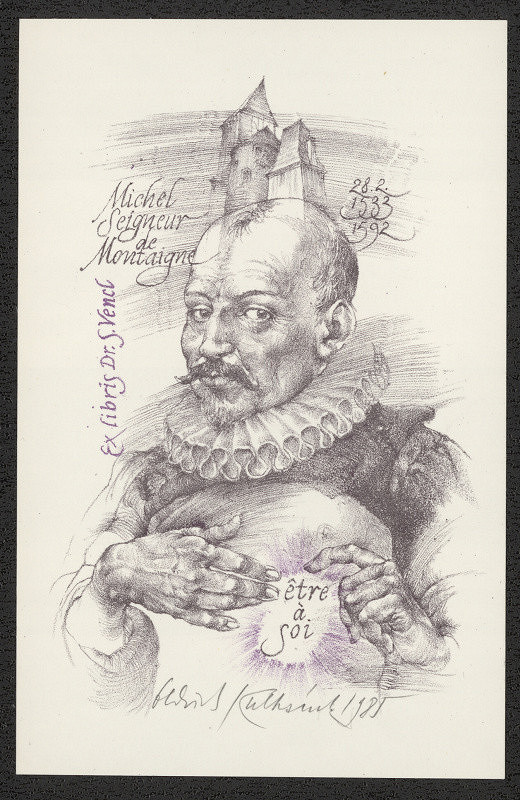 Michel
Seigneur
de
Montaigne
28.2.
1533
1592
Ex libris Dr. S. Vencl
être
à
soi
Oldřich Kulhánek 1985